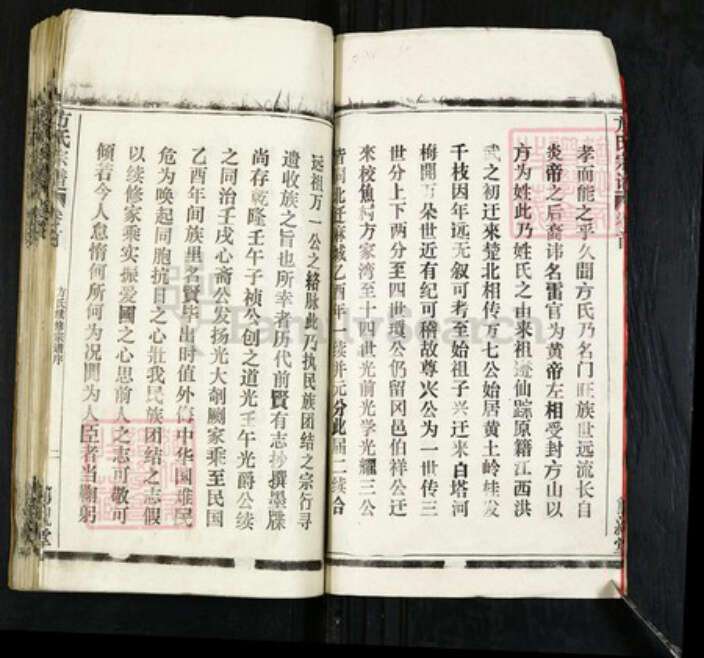 方氏宗谱
卷首
孝而能之乎久闻方氏乃名门旺族世远流长自
炎帝之后裔讳名雷官为黄帝左相受封方山以
方为姓此乃姓氏之由来祖迹仙踪原籍江西洪
武之初迁来楚北相传万七公始居黄土岭桂发
千枝因年远无叙可考至始祖子兴迁来白塔河
梅開万朵世近有纪可稽故尊兴公为一世传三
世分上下两分至四世瓊公仍留冈邑伯祥公迁
来校焦柯方家湾至十四世光前光学光耀三公
皆 北迁麻城乙酉年一续并元分此届二续合
远祖万一公之络脉此乃执民族团结之宗行寻
遗收族之旨也所幸者历代前賢有志抄撰墨牒
尚存乾隆壬午子祯公创之道光壬午光爵公续
之同治壬戌心斋公发扬光大剞劂家乘至民国
乙酉年间族里名賢毕出时值外侮中华国难民
危为唤起同胞抗日之心壮我民族团结之志假
以续修家乘实振爱國之心思前人之志可敬可
倾着今人怠惰何所何为况門为人臣者当鞠躬
方氏宗谱 卷首
方氏续修宗谱序
二
FamilySearch